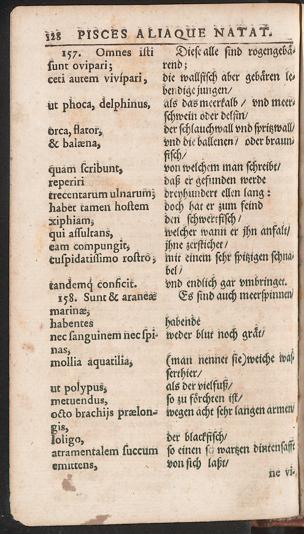 128 PISCES ALIAQUE NATAT.
157. Omnes isti Diese alle sind rogengebä-
sunt ovipari; rend;
ceti autem vivipari, die wallfisch aber gebären le-
bendige jungen/
ut phoca, delphinus, als das meerkalb / vnd meer-
schwein oder delfin/
orca, flator, der schlauchwall vnd spritzwall/
& balæna, vnd die ballenen / oder braun-
fisch/
quam scribunt, von welchem man schreibt/
reperiri daß er gefunden werde
trecentarum ulnarum; dreyhundert ellen lang :
habet tamen hostem doch hat er zum feind
xiphiam, den schwertfisch/
qui assultans, welcher wann er jhn anfalt/
eam compungit, jhne zerstichet/
cuspidatissimo rostro; mit einem sehr spitzigen schna-
bel/
tandemq; conficit. vnd endlich gar vmbringet.
158. Sunt & araneæ Es sind auch meerspinnen/
marinæ,
habentes habende
nec sanguinem nec spi- weder blut noch grät/
nas,
mollia aquatilia, (man nennet sie) weiche was-
serthier/
ut polypus, als der vielfuß/
metuendus, so zu förchten ist/
octo brachijs prælon- wegen acht sehr langen armen/
gis,
loligo, der blackfisch/
atramentalem succum so einen schwartzen dintensafft
emittens, von sich laßt/
ne vi-